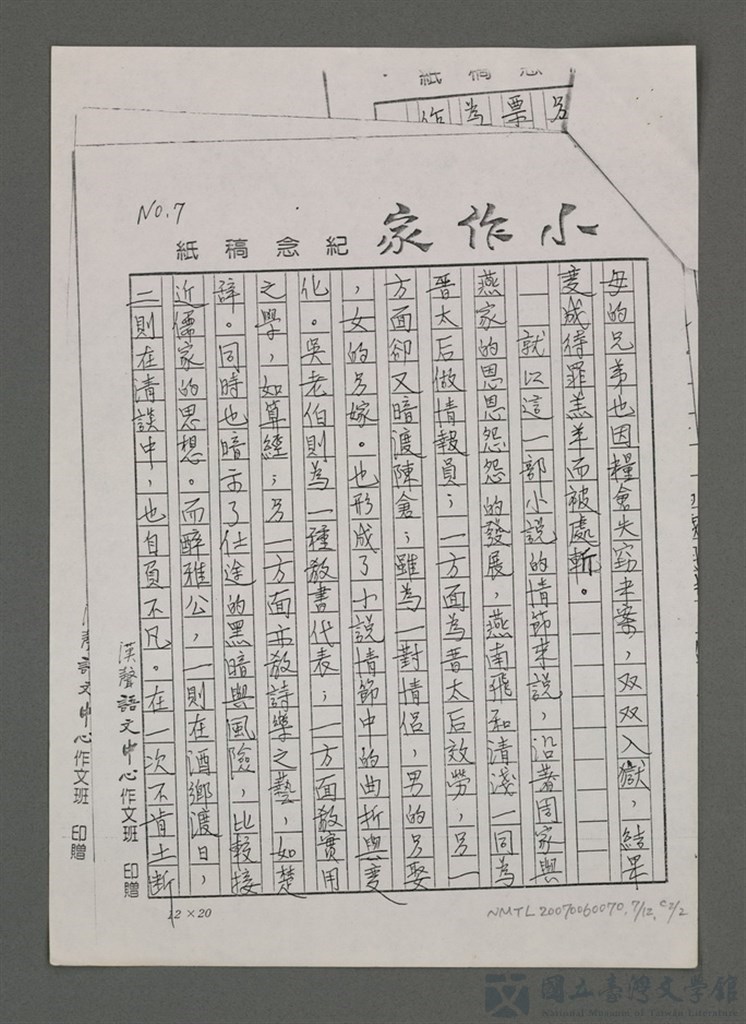 紙 稿 念
另
票
為
作
No.7
小作家
紀念稿紙
母的兄弟也因糧倉失竊半案，双双入獄，結果
變成得罪羔羊而被處斬。
就以這一部小說的情節來說，沿著周家與
燕家的恩恩怨怨的發展，燕南飛和清淺一同為
晉太后做情報員；一方面為晉太后效勞，另一
方面卻又暗渡陳倉；雖為一對情侶，男的另娶
，女的另嫁。也形成了小說情節中的曲折與變
化。吳老伯則為一種教書代表；一方面教實用
之學，如算經；另一方面亦教詩學之藝，如楚
辭。同時也暗示了仕途的黑暗與風險，比較接
近儒家的思想。而醉雅公，一則在酒鄉渡日，
二則在清談中，也自負不凡。在一次不肯土斷
漢聲語文中心作文班 印贈
聲語文中心作文班 印贈
12×20
NMTL20070060070, 7/12, c2/2
國立臺灣文學館
National Museum of Taiwan Literature